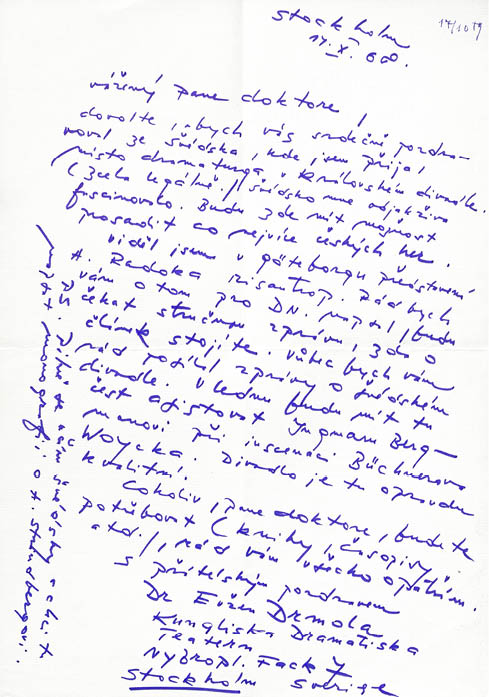 Stockholm
17. X. 68.
17/10 69
vážený pane doktore,
dovolte, abych vás srdečně pozdra-
voval ze Švédska, kde jsem přijal
místo dramaturga v Královském divadle.
(zcela legálně.) Švédsko mne odjakživa
fascinovalo. Budu zde mít možnost
prosadit co nejvíce českých her.
Viděl jsem v Göteborgu představení
A. Radoka Misantrop. Rád bych
vám o tom pro DN. napsal, budu
čekat stručnou zprávu, zda o
článek stojíte. Vůbec bych vám
rád posílal zprávy o švédském
divadle. V lednu budu mít tu
čest asistovat Ingmaru Berg-
manovi při inscenaci Büchnerova
Woycka. Divadlo je tu opravdu
kvalitní.
Cokoliv, pane doktore, budete
potřebovat (knihy, časopisy
atd.), rád vám všecko opatřím.
s přátelským pozdravem
Dr Evžen Drmola
Kungliska Dramatiska
Teatern
Nybropl. Fack 7
Stockholm Sverige
se zde
napsat monografii o A. Strindbergovi.